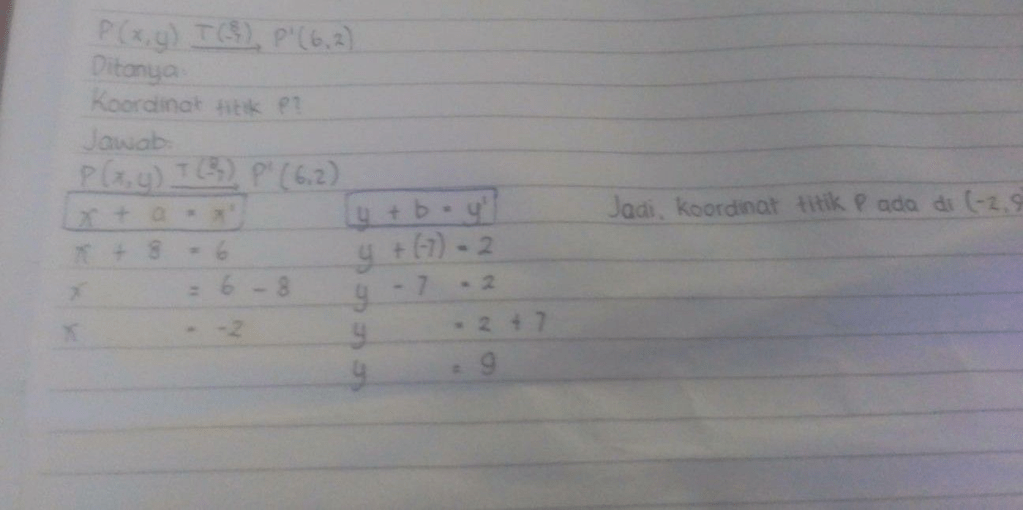 P(x,y) T(8 -7) P'(6,2)
Ditanya:
Koordinat titik P?
Jawab:
P(x,y) T(8 -7) P'(6,2)
x + a = x' y + b = y' Jadi, koordinat titik P ada di (-2,9
x + 8 = 6 y + (-7) = 2
x = 6 - 8 y - 7 = 2
x = -2 y = 2 + 7
y = 9